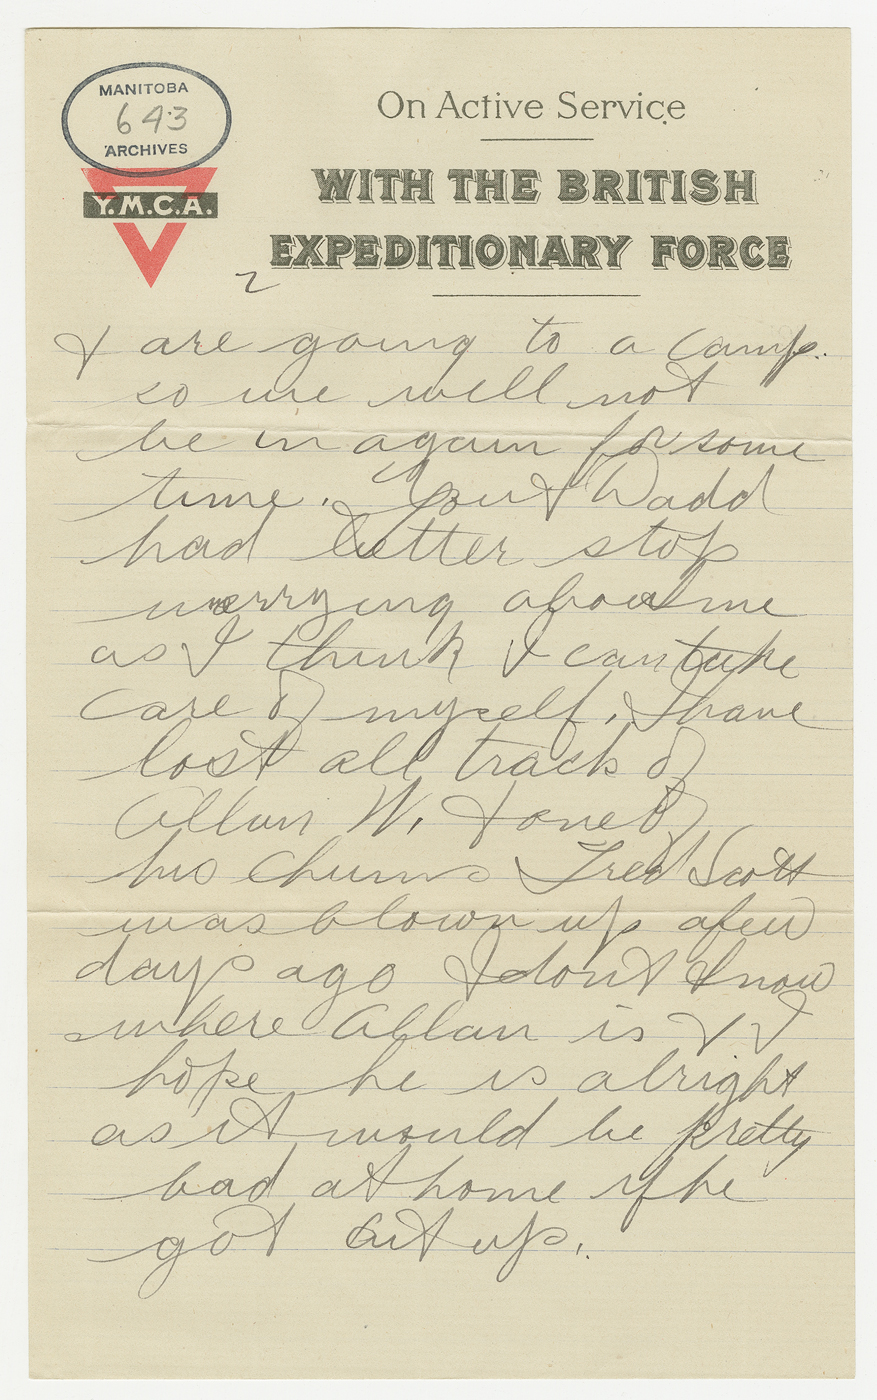 MANITOBA
643
ARCHIVES
Y.M.C.A.
On Active Service
WITH THE BRITISH
EXPEDITIONARY FORCE
2
& are going to a camp.
so we will not
be in again for some
time. You & Dadd
had better stop
worrying about me
as I think I can take
care of myself. I have
lost all track of
Allan W. & one of
his chums Fred Scott
was blown up a few
days ago I dont know
where Allan is & I
hope he is alright
as it would be pretty
bad at home if he
got cut up.